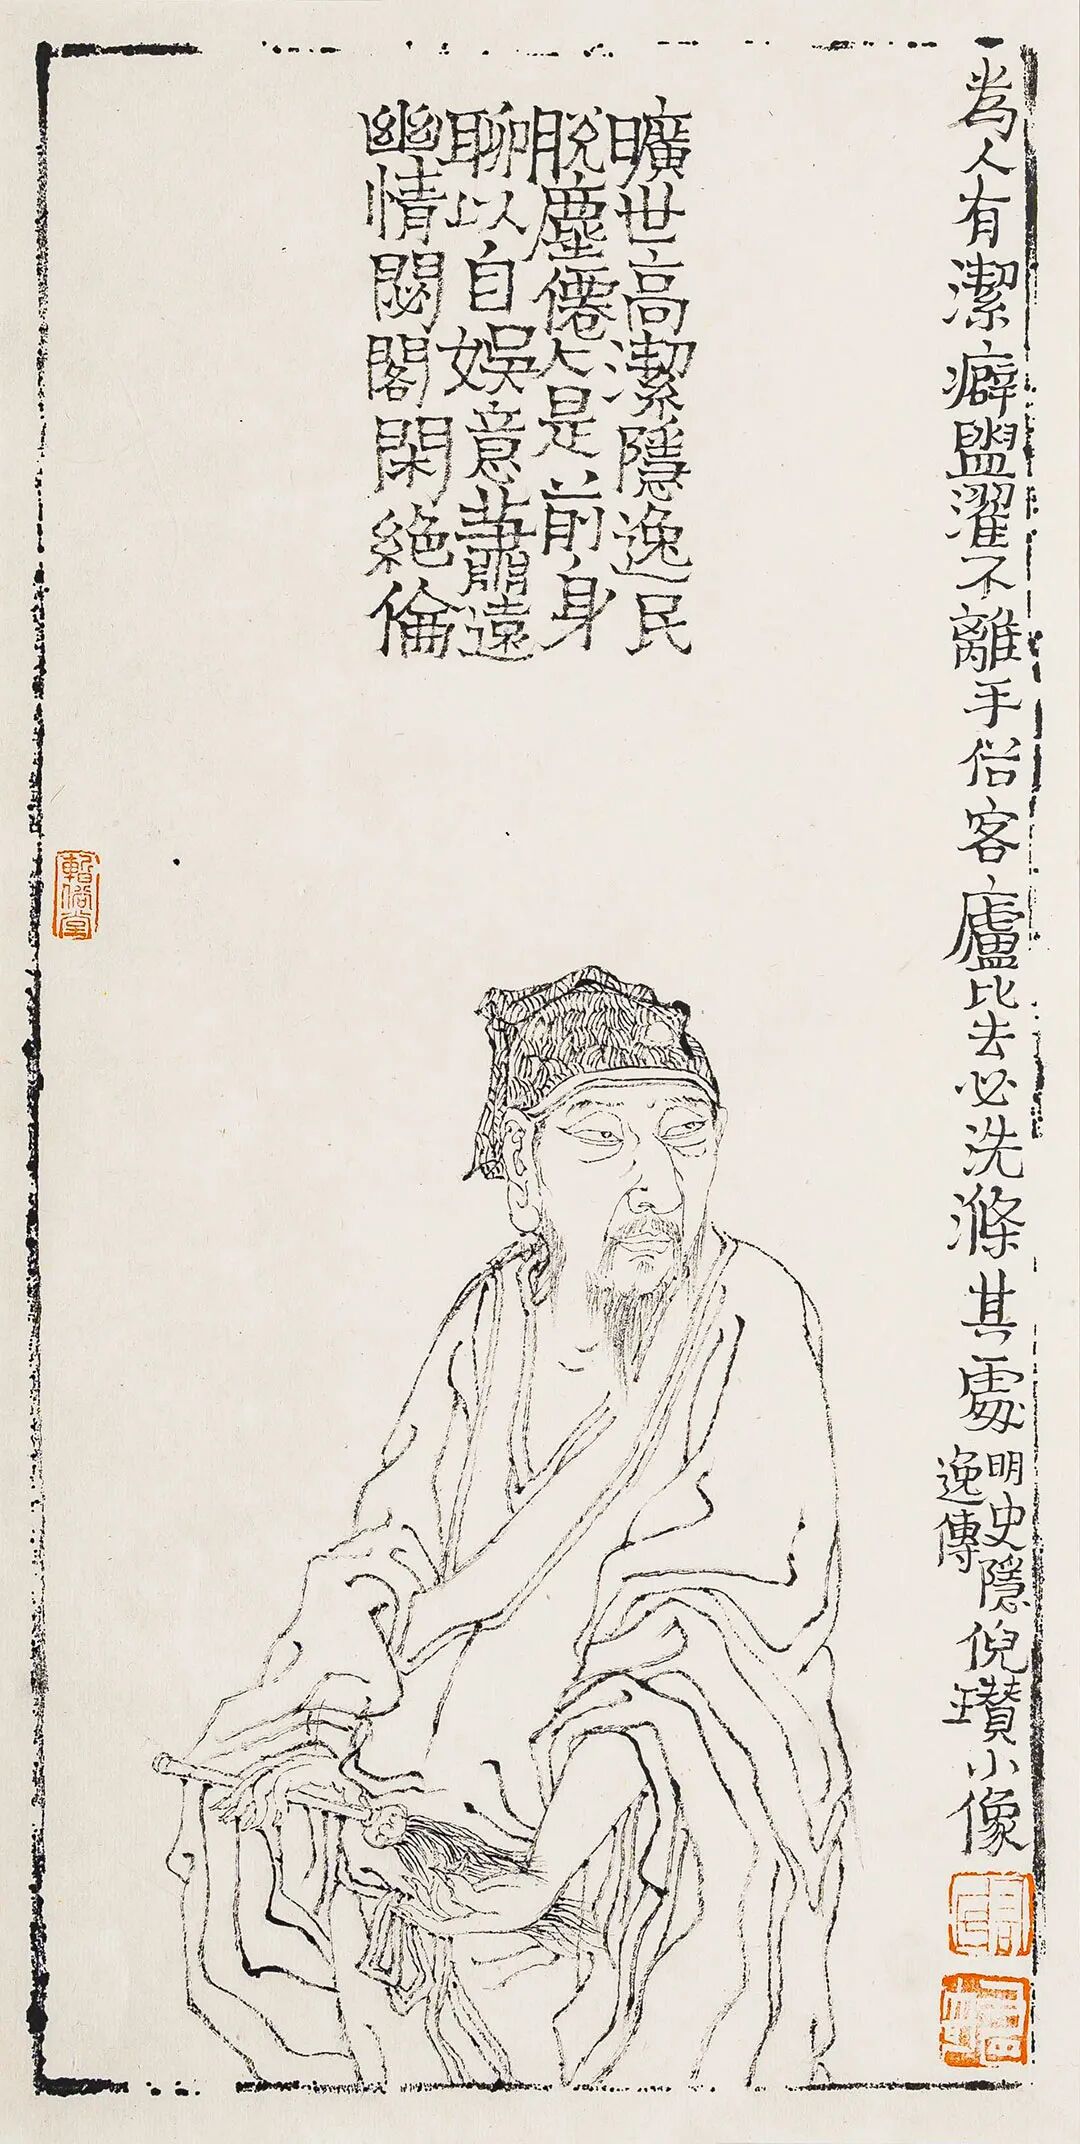 為人有潔癖盥濯不離手俗客廬比去必洗滌其處
明史隱
逸傳
倪瓚小像
曠世高潔隱逸民
脫塵僊人是前身
聊以自娛意蕭遠
幽情閟閣閑絕倫
暫俗堂